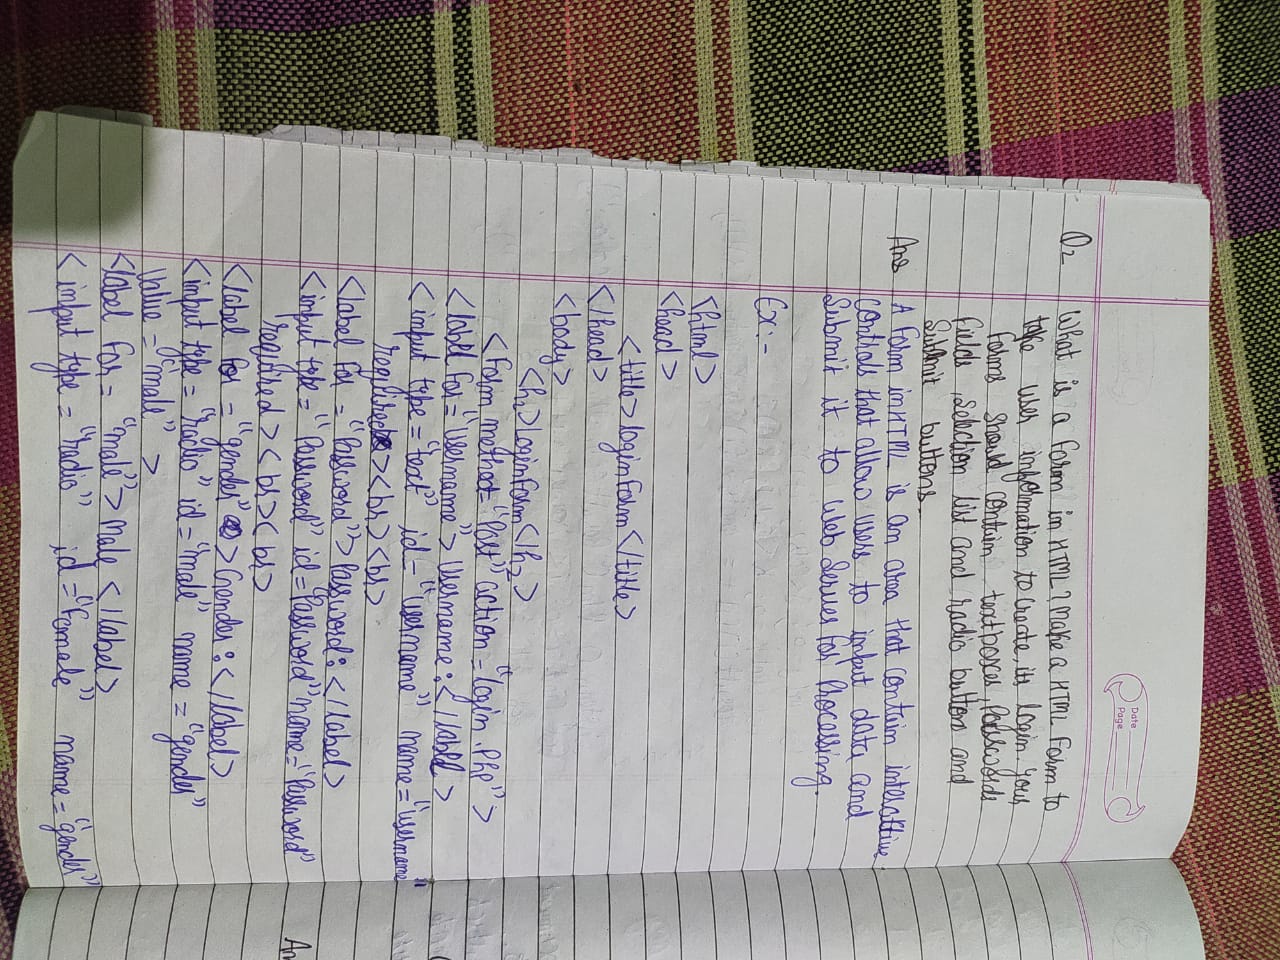 Date
Page
Q2 What is a form in HTML? Make a HTML Form to
take user information to create, its login. Your
forms should contain textboxes, Passwords
fields, selection list and radio button and
Submit buttons.
Ans A form in HTML is an area that contain interactive
controls that allow users to input data and
Submit it to Web Server for Processing.
Ex:-
<html>
<head>
<title>loginform</title>
</head>
<body>
<h2>loginform</h2>
<form method="Post" action="login.php">
<label for="Username">Username:</label>
<input type="text" id="username" name="username"
required><br><br>
<label for="Password">Password:</label>
<input type="Password" id="Password" name="Password"
required><br><br>
<label for="gender">Gender:</label>
<input type="radio" id="male" name="gender"
Value="male">
<label for="male">Male</label>
<input type="radio" id="Female" name="gender"
An